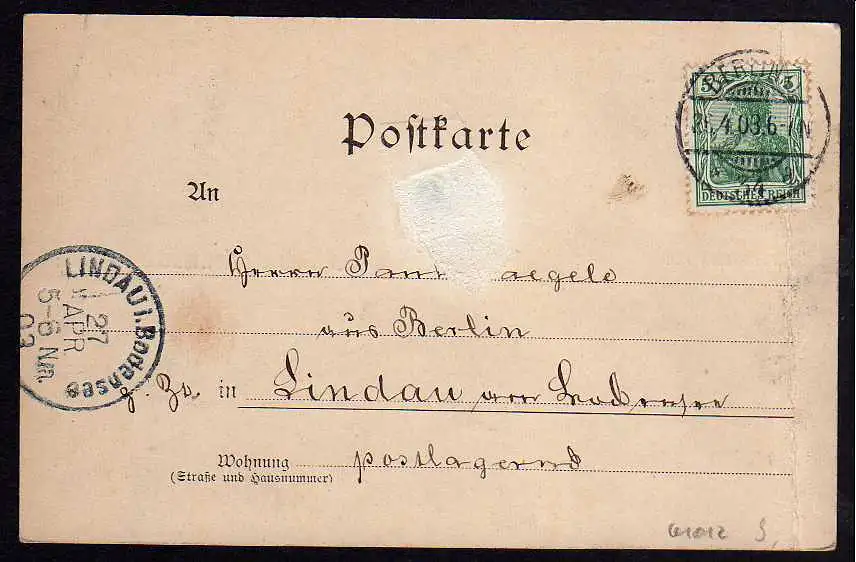 Postkarte
5 5
BERLIN
4.03.6-7N
DEUTSCHES REICH
An
Herrn Paul aegele
aus Berlin
z. Zt. in Lindau am Bodensee
Wohnung postlagernd
(Straße und Hausnummer)
LINDAU i. Bodensee
27
APR
5-6 Nm.
03
61012